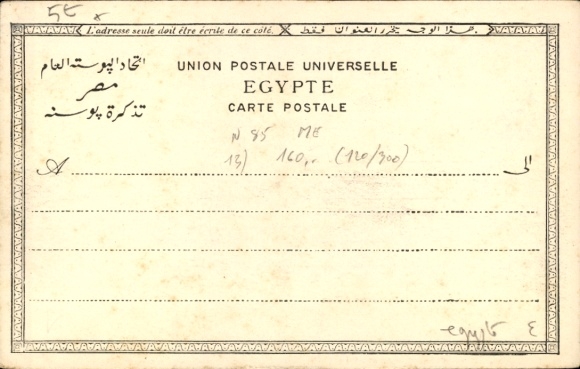 5€ x
L'adresse seule doit être écrite de ce côté. هذا الوجه يحرر العنوان فقط
اتحاد البوسته العام
UNION POSTALE UNIVERSELLE
مصر
EGYPTE
تذكرة بوسته
CARTE POSTALE
N 85 ME
13) 160,- (120/300)
A الى
egypte €